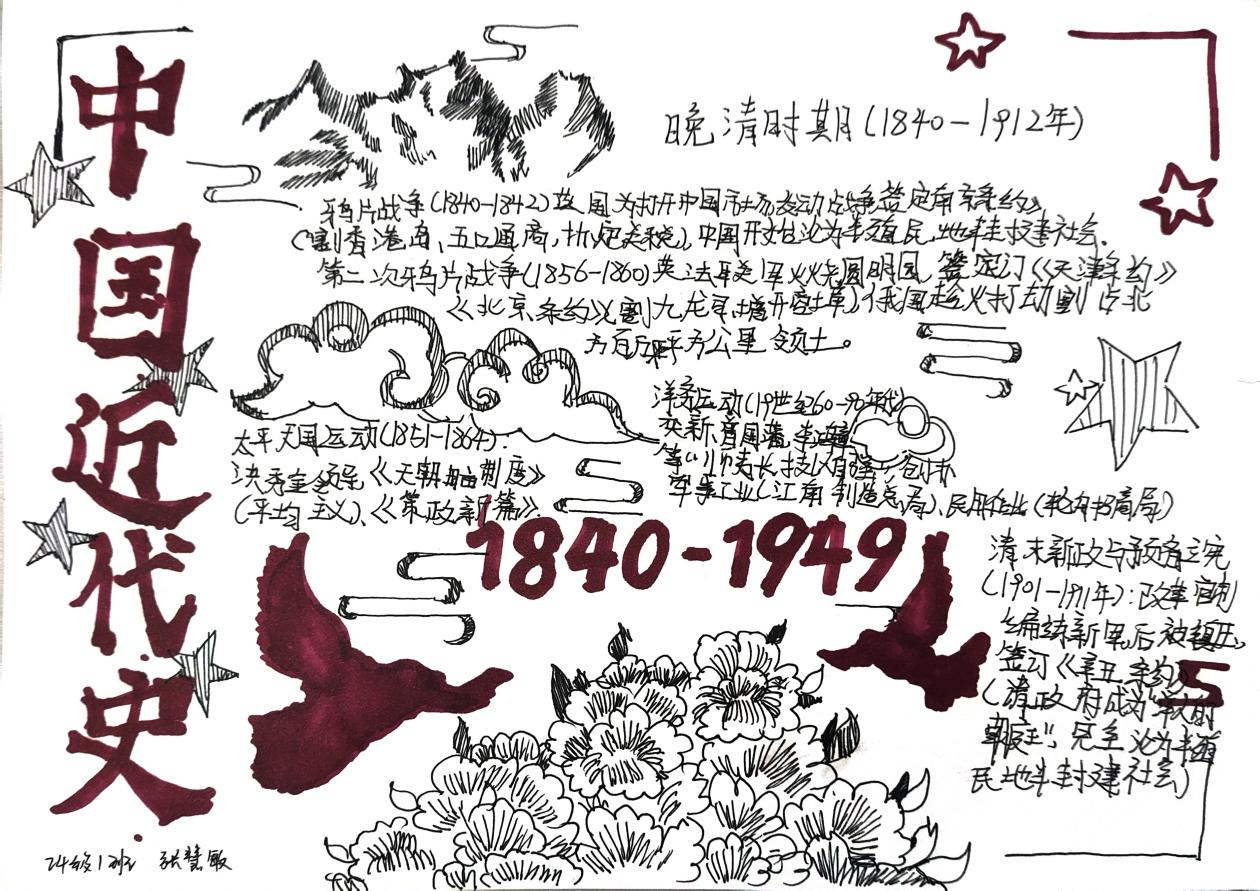 中国近代史
晚清时期(1840-1912年)
鸦片战争(1840-1842)英国为打开中国市场发动战争签定南京条约》
(割香港岛、五口通商,协定关税),中国开始沦为半殖民地半封建社会.
第二次鸦片战争(1856-1860)英法联军火烧圆明园 签定订《《天津条约》
《北京条约》(割九龙司,增开商埠)俄国趁火打劫割占北
方百万平方公里领土。
太平天国运动(1851-1864):
洪秀全领导《天朝田亩制度》
(平均主义)、《《资政新篇》
洋务运动(19世纪60-90年代)
奕 曾国藩
等以师夷长技以自强 创办
军事工业(江南制造总局)、民用企业(轮船招商局)
1840-1949
清末新政与预备立宪
(1901-1911年):改革官制
编练新军后被镇压,
签订《辛丑条约》
(清政府成为 的
朝廷",完全沦为半殖
民地半封建社会)
24级1班 张慧敏